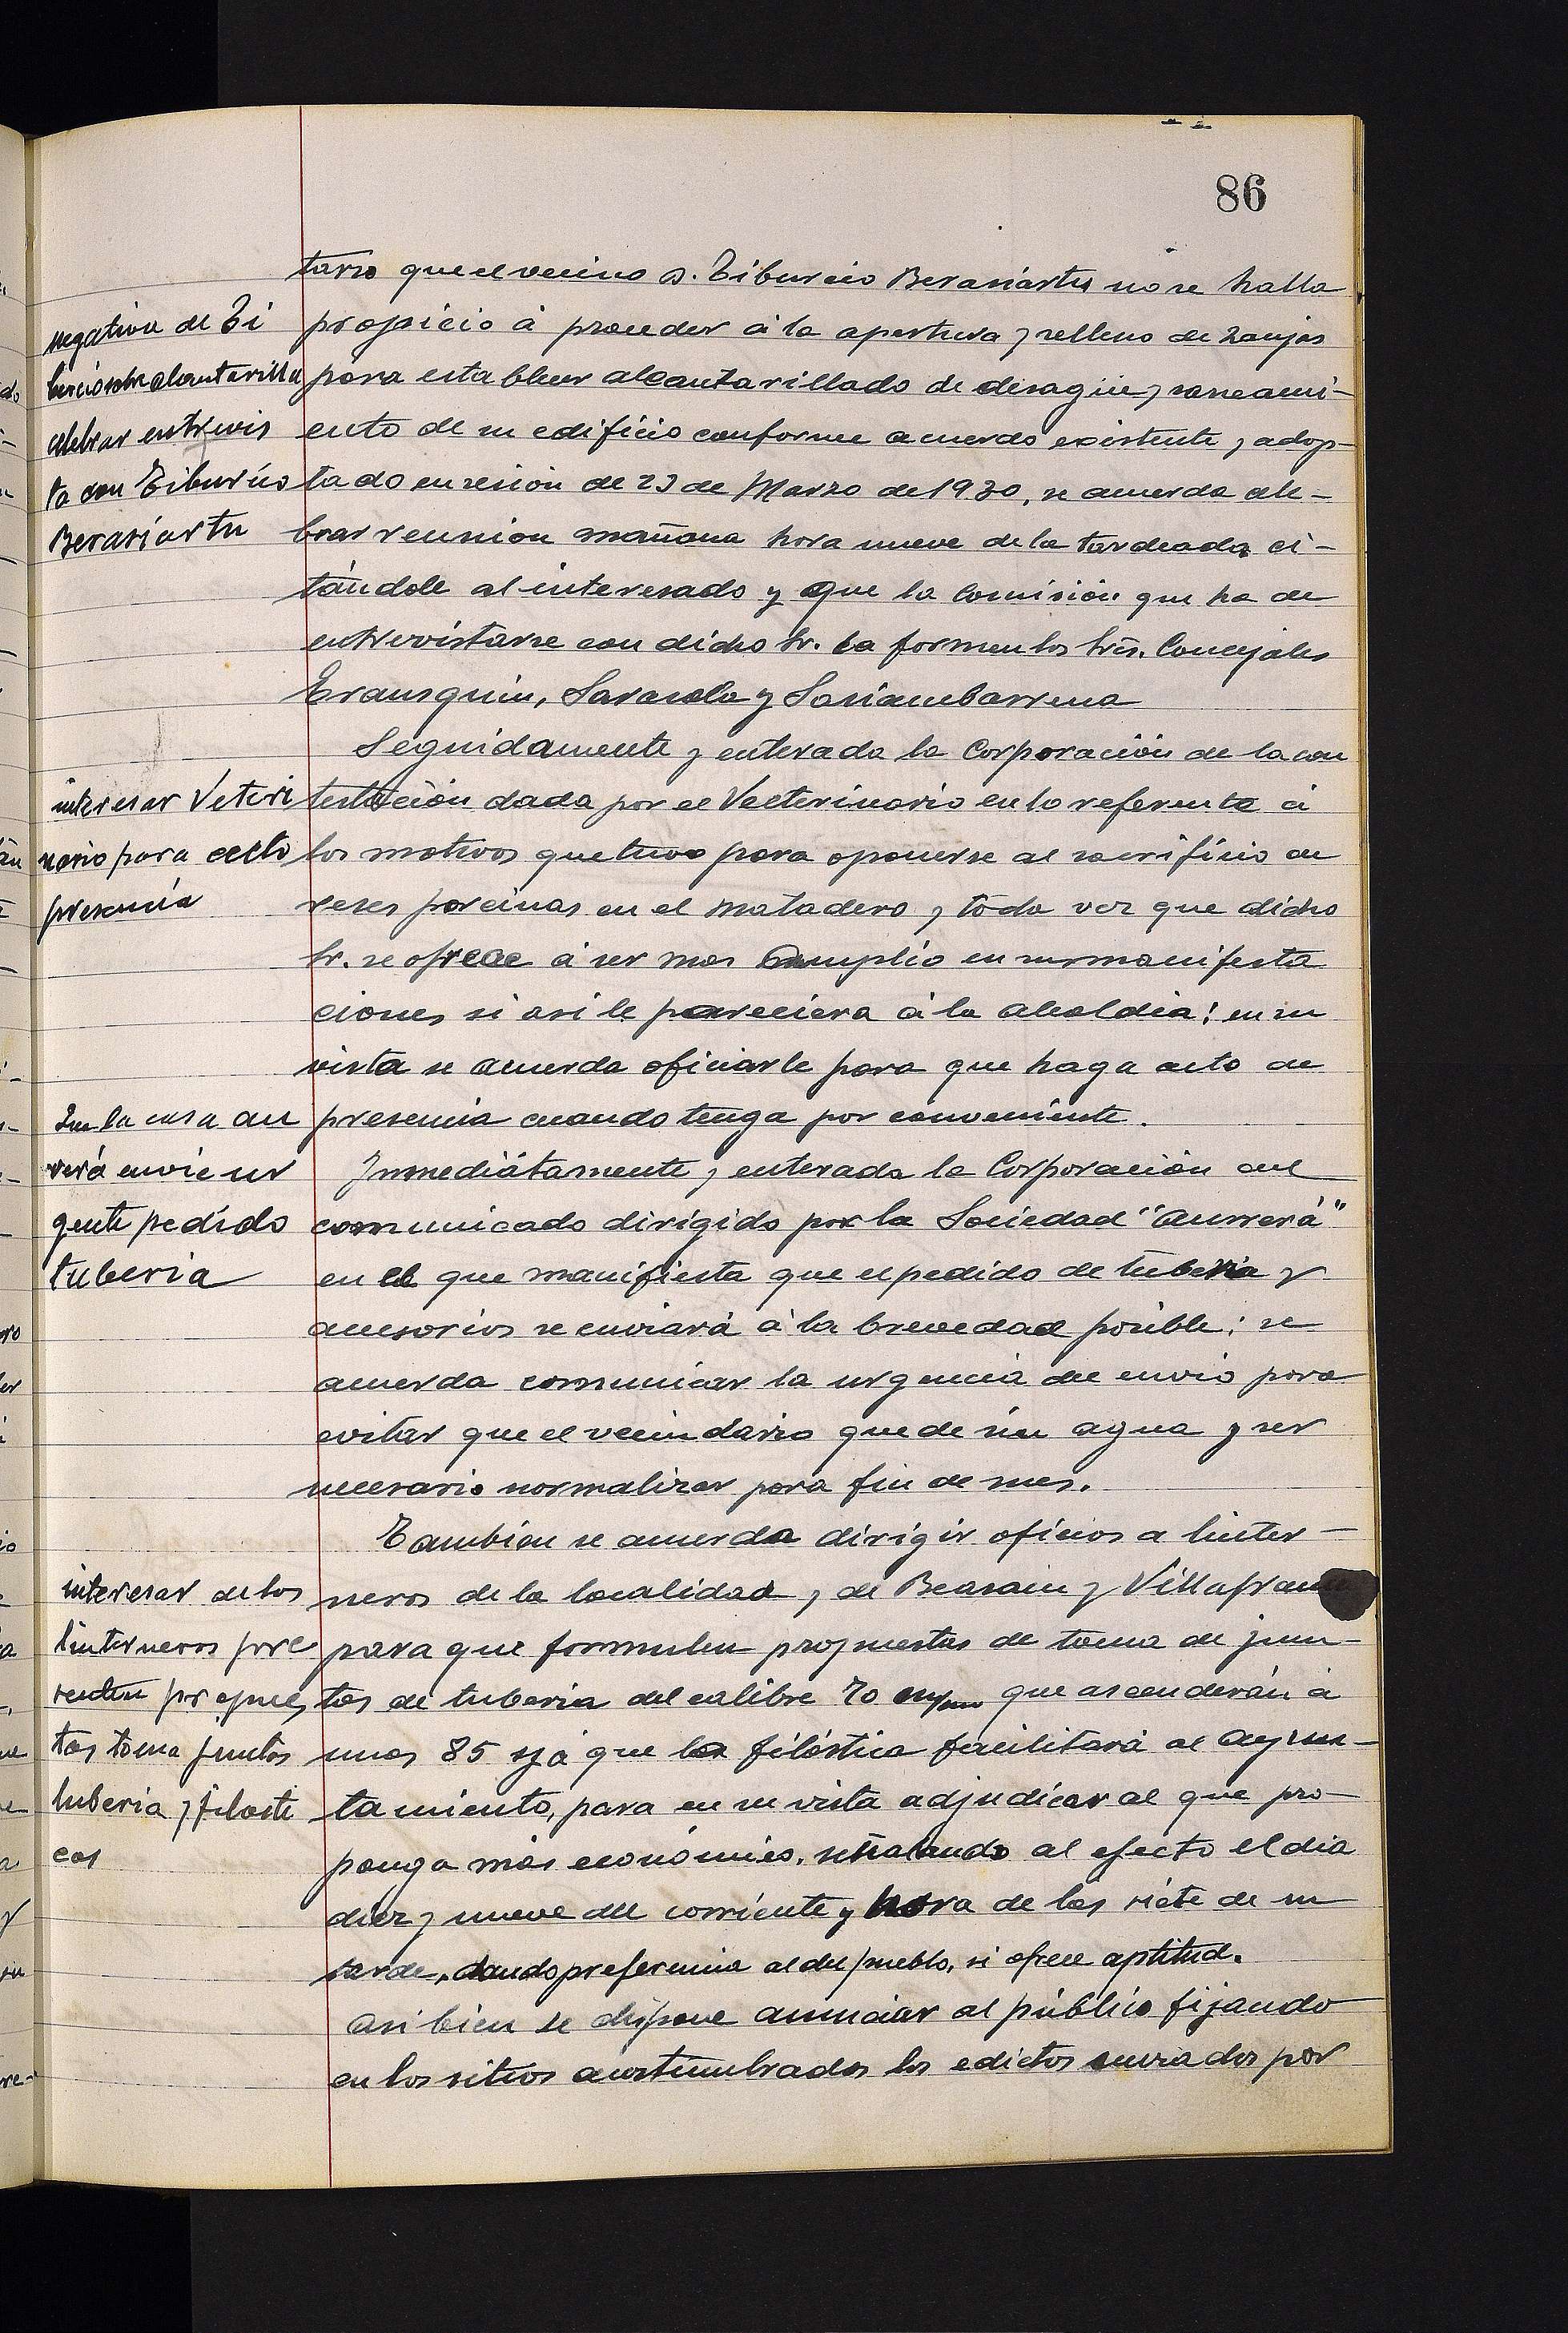 86
tario que el vecino D. Tiburcio Berasiartu no se halla
propicio á proceder á la apertura y relleno de zanjas
para establecer alcantarillado de disagüe y saneami-
ento de su edificio conforme acuerdo existente y adop-
tado en sesión de 29 de Marzo de 1930, se acuerda cele-
brar reunion mañana hora nueve de la tardeada ci-
tándole al interesado y que la Comisión que ha de
entrevistarse con dicho Sr. la formen los Srs. Concejales
Erausquin, Sarasola y Soriambarrena
negativa de Ti
burcio sobre alcantarilla
celebrar entrevis
ta con Tiburcio
Berasiartu
Seguidamente y enterada la Corporación de la con
testación dada por el Vecterinario en lo referente á
los motivos que tuvo para oponerse al sacrificio de
reses porcinas en el matadero y toda vez que dicho
Sr. se ofrece á ser mas amplio en sus manifesta
ciones si asi le pareciera á la alcaldia: en su
vista se acuerda oficiarle para que haga acto de
presencia cuando tenga por conveniente.
interesar Veteri
nario para acto
presencia
Inmediátamente y enterada la Corporación del
comunicado dirigido por la Sociedad "Aurrerá"
en el que manifiesta que el pedido de tuberia y
accesorios se enviará á la brevedad posible: se
acuerda comunicar la urgencia de envio para
evitar que el vecindario quede sin agua y ser
necesario normalizar para fin de mes.
la casa au
rrerá envie ur
gente pedido
tuberia
Tambien se acuerda dirigir oficios a linter-
neros de la localidad y de Beasain y Villafranca
para que formulen propuestas de toma de jun-
tas de tuberia del calibre 70 m/m que ascenderán á
unas 85 y á que la filástica facilitará el Ayun-
tamiento, para en su vista adjudicar al que pro-
ponga más económico, señalando al efecto el dia
diez y nueve del corriente y hora de las siete de su
tarde, dando preferencia al del pueblo, si ofrece aptitud.
interesar de los
linterneros pre
senten propues
tas toma juntas
tuberia y filasti
cas
Asi bien se dispone anunciar al público fijando
en los sitios acostumbrados los edictos enviados por